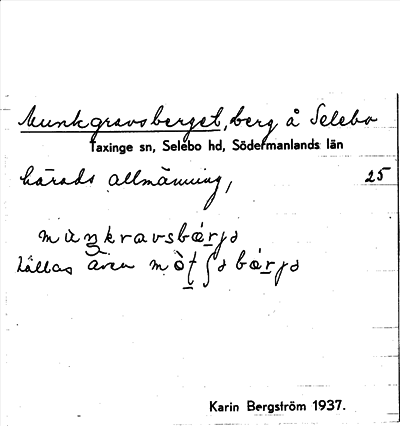 Munkgravsberget, berg å Selebo
Taxinge sn, Selebo hd, Södermanlands län
härads allmänning, 25
mùŋkravsbœ́rjə
kallas även mò
Karin Bergström 1937.